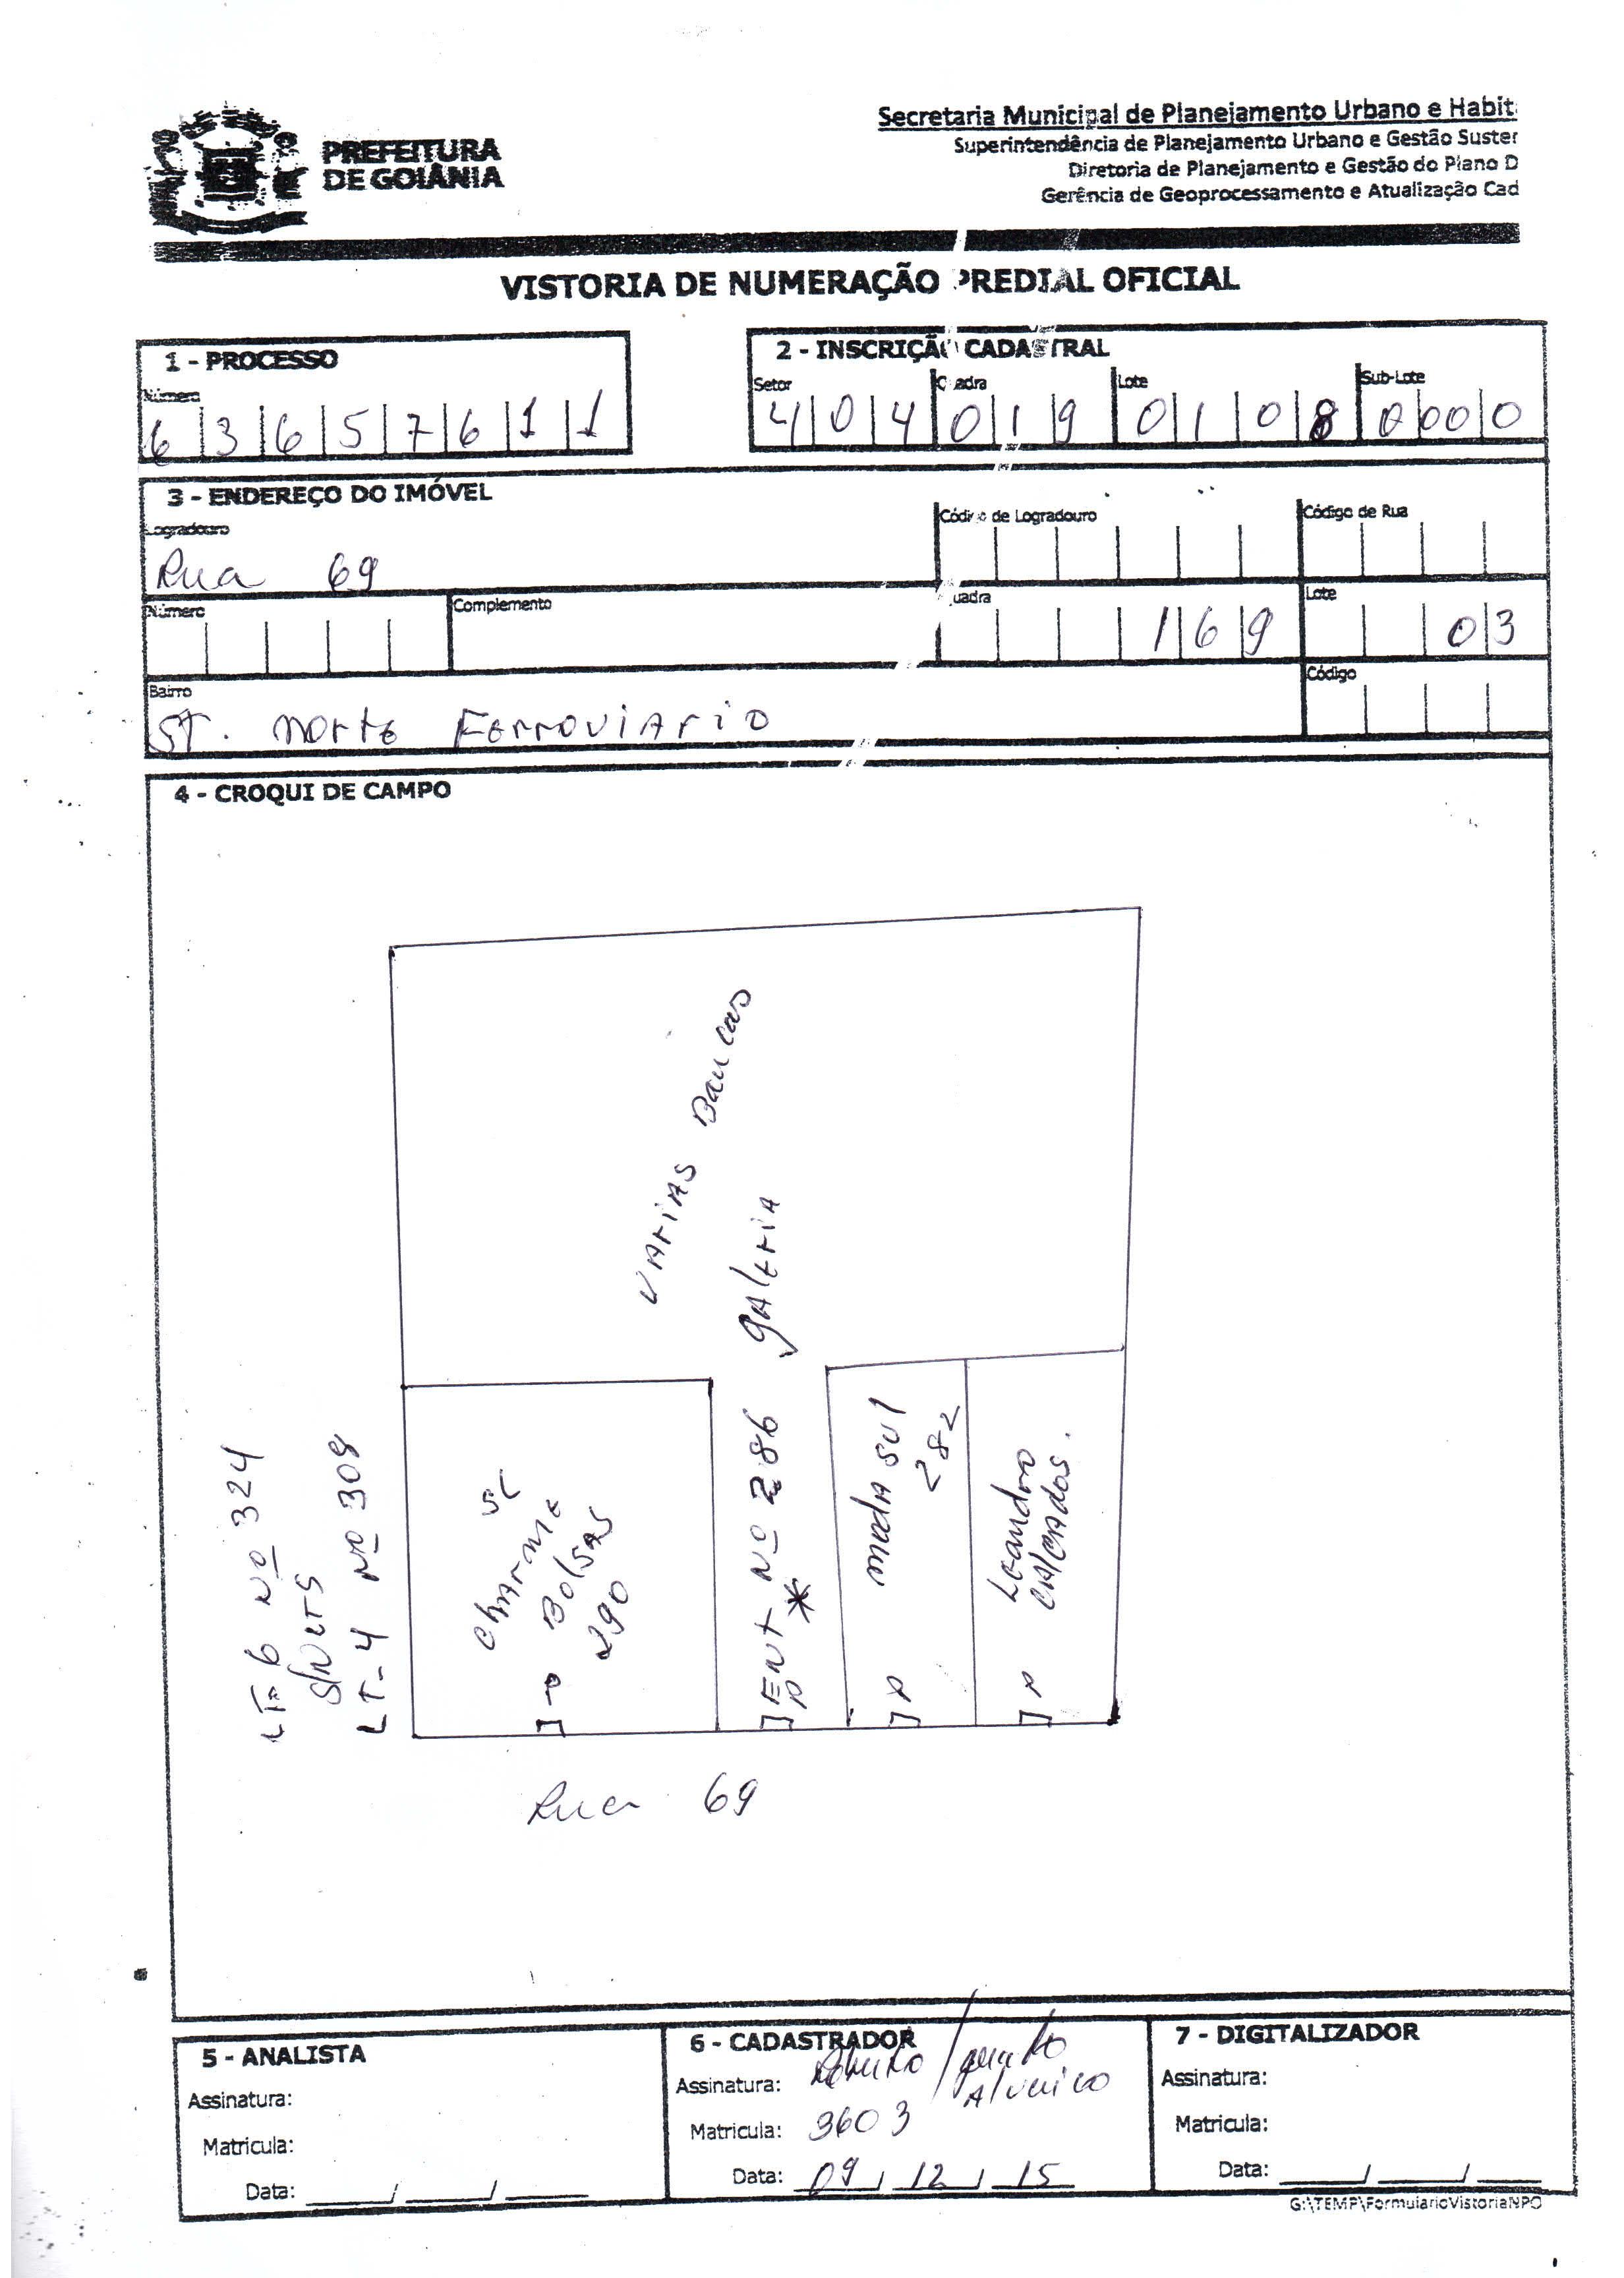 PREFEITURA
DE GOIÂNIA
Secretaria Municipal de Planejamento Urbano e Habit
Superintendência de Planejamento Urbano e Gestão Suster
Diretoria de Planejamento e Gestão do Plano D
Gerência de Geoprocessamento e Atualização Cad
VISTORIA DE NUMERAÇÃO PREDIAL OFICIAL
1 - PROCESSO
Número
6 3 6 5 7 6 1 1
2 - INSCRIÇÃO CADASTRAL
Setor Quadra Lote Sub-Lote
4 0 4 0 1 9 0 1 0 8 0 0 0 0
3 - ENDEREÇO DO IMÓVEL
Logradouro Código de Logradouro Código de Rua
Rua 69
Número Complemento Quadra Lote
1 6 9 0 3
Bairro Código
ST. Norte Ferroviario
4 - CROQUI DE CAMPO
VARIAS Bancas
galeria
LT- 6 Nº 324
S/N LT5
LT- 4 Nº 308
Charme
Bolsas
290
ENT Nº 286
P *
moda sul
282
P
Leandro
calcados.
P
Rua 69
5 - ANALISTA
Assinatura:
Matricula:
Data: ___/___/___
6 - CADASTRADOR
Assinatura:
Matricula: 3603
Data: 09 / 12 / 15
7 - DIGITALIZADOR
Assinatura:
Matricula:
Data: ___/___/___
G:\TEMP\FormularioVistoriaNPO